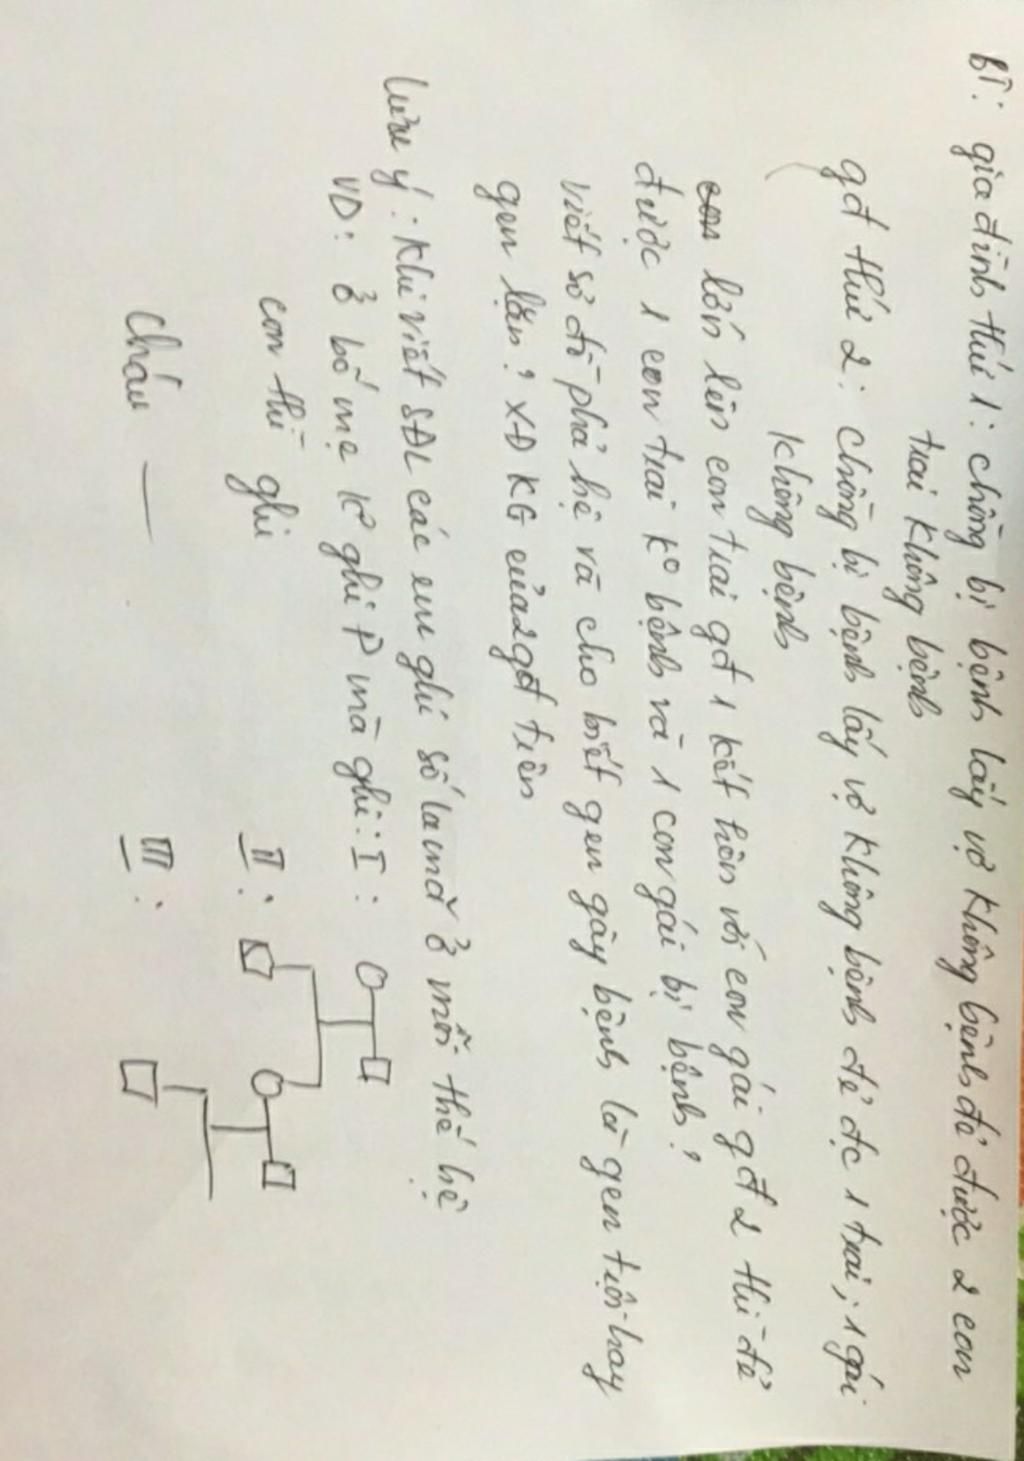 BT: gia đình thứ 1: chồng bị bệnh lấy vợ không bệnh đẻ được 2 con
trai không bệnh
gđ thứ 2: chồng bị bệnh lấy vợ không bệnh đẻ đc 1 trai, 1 gái
không bệnh
lớn lên con trai gđ 1 kết hôn với con gái gđ 2 thì đẻ
được 1 con trai k° bệnh và 1 con gái bị bệnh?
Viết sơ đồ phả hệ và cho biết gen gây bệnh là gen trội hay
gen lặn? XĐ KG của 2 gđ trên
Lưu ý: Khi viết SĐL các em ghi số la mã ở mỗi thế hệ
VD: ở bố mẹ k° ghi P mà ghi: I:
con thì ghi II:
Cháu — III: